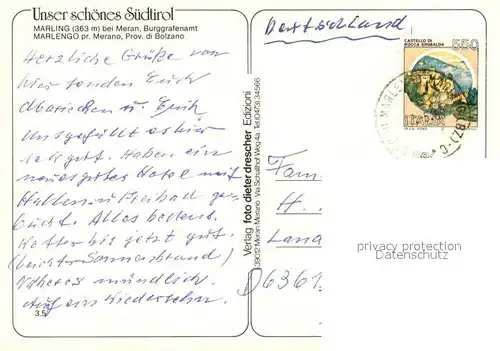 Unser schönes Südtirol
MARLING (363 m) bei Meran, Burggrafenamt
MARLENGO pr. Merano, Prov. di Bolzano
Herzliche Grüße von
hier senden Euch
Uns gefällt es hier
sehr gut. Haben ein
neues gutes Hotel mit
Hallen- u. Freibad ge-
bucht. Alles bestens.
Wetter bis jetzt gut.
(leichter Sonnenbrand)
Näheres mündlich.
Auf ein Wiedersehn.
3.5
Verlag foto dieter drescher Edizioni
39012 Meran-Merano · Via Schallhof Weg 4a · Tel. (0473) 34566
Deutschland
CASTELLO DI
ROCCA SINIBALDA
550
ITALIA
MARLENGO
(BZ)
Fam.
H.
Lana
D 6361
privacy protection
Datenschutz